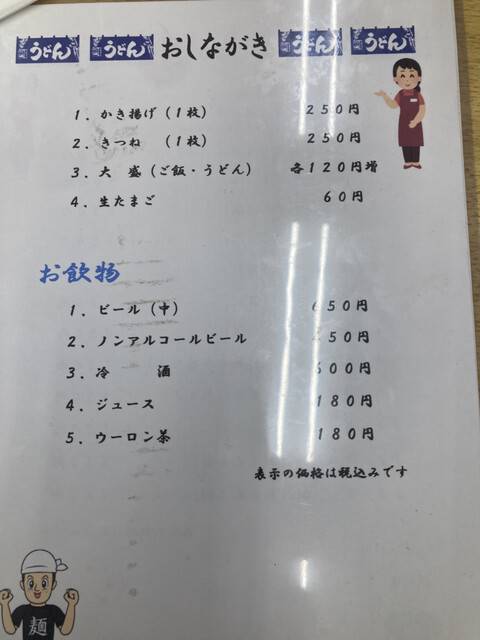 うどん うどん おしながき うどん うどん
1．かき揚げ（1枚） 250円
2．きつね （1枚） 250円
3．大 盛（ご飯・うどん） 各120円増
4．生たまご 60円
お飲物
1．ビール（中） 650円
2．ノンアルコールビール 450円
3．冷 酒 600円
4．ジュース 180円
5．ウーロン茶 180円
表示の価格は税込みです
麺